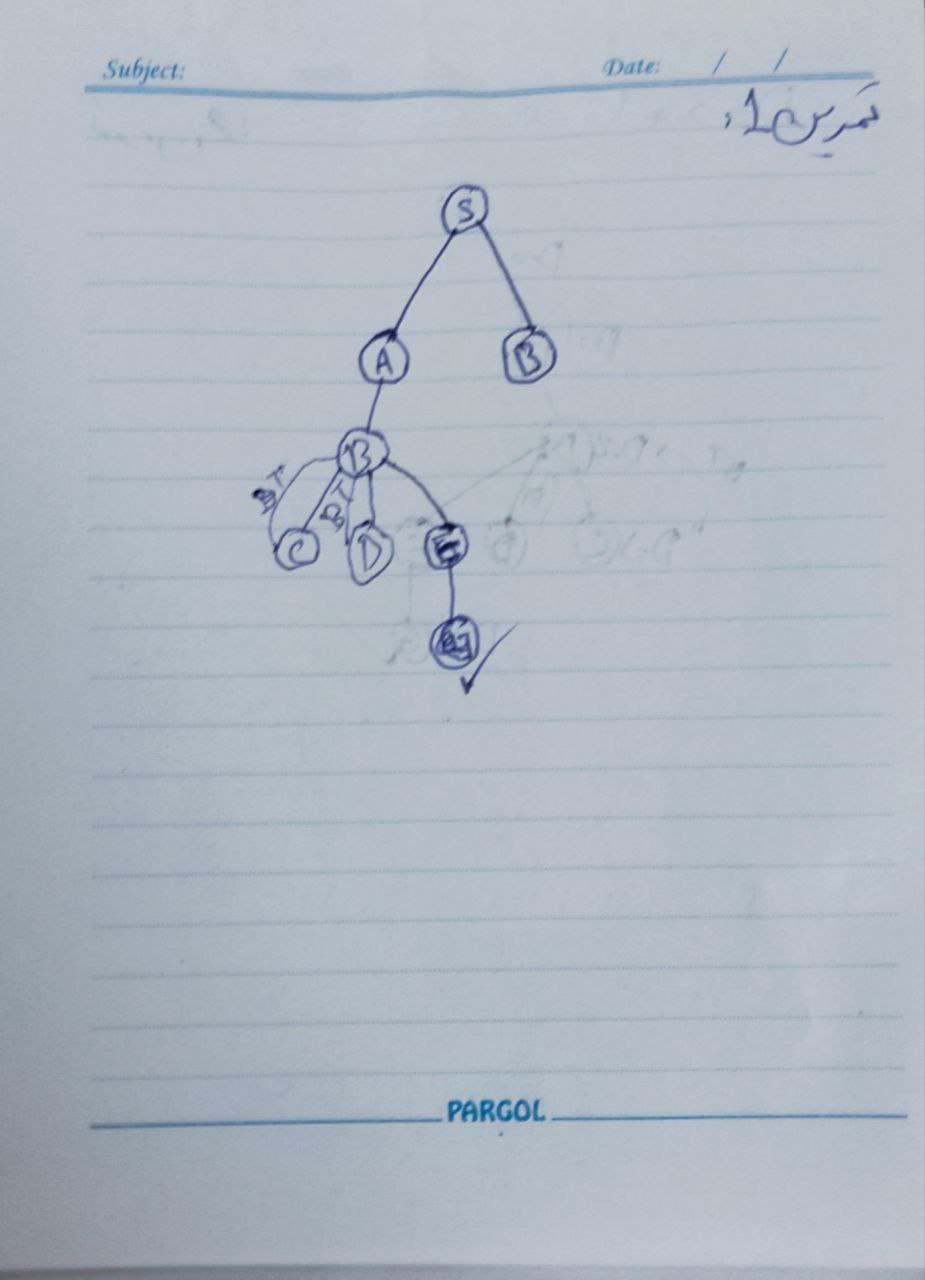 Subject:
Date: / /
تمرین 1:
S
A B
B
BT BT
C D E
G
PARGOL